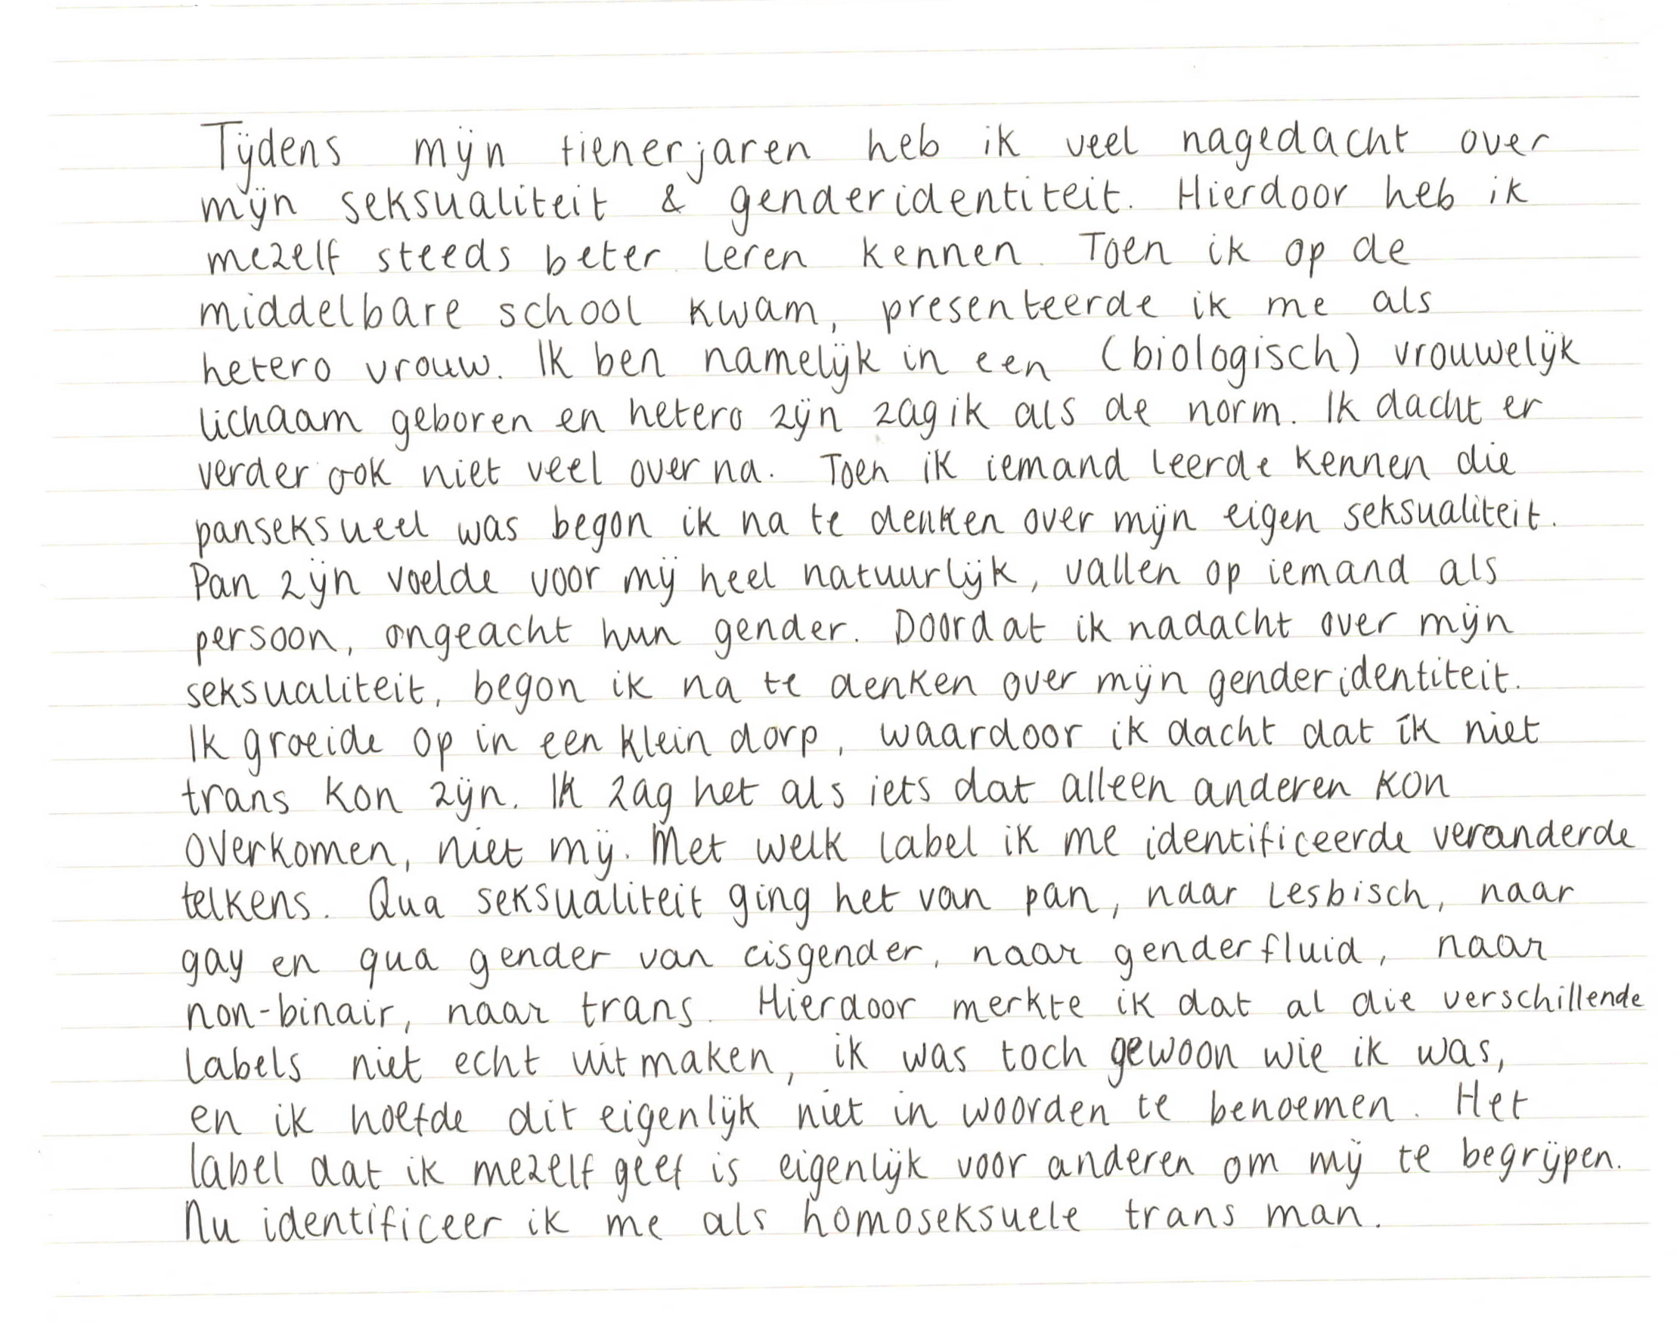 Tijdens mijn tienerjaren heb ik veel nagedacht over
mijn seksualiteit & genderidentiteit. Hierdoor heb ik
mezelf steeds beter leren kennen. Toen ik op de
middelbare school kwam, presenteerde ik me als
hetero vrouw. Ik ben namelijk in een (biologisch) vrouwelijk
lichaam geboren en hetero zijn zag ik als de norm. Ik dacht er
verder ook niet veel over na. Toen ik iemand leerde kennen die
panseksueel was begon ik na te denken over mijn eigen seksualiteit.
Pan zijn voelde voor mij heel natuurlijk, vallen op iemand als
persoon, ongeacht hun gender. Doordat ik nadacht over mijn
seksualiteit, begon ik na te denken over mijn genderidentiteit.
Ik groeide op in een klein dorp, waardoor ik dacht dat ik niet
trans kon zijn. Ik zag het als iets dat alleen anderen kon
overkomen, niet mij. Met welk label ik me identificeerde veranderde
telkens. Qua seksualiteit ging het van pan, naar lesbisch, naar
gay en qua gender van cisgender, naar genderfluid, naar
non-binair, naar trans. Hierdoor merkte ik dat al die verschillende
labels niet echt uitmaken, ik was toch gewoon wie ik was,
en ik hoefde dit eigenlijk niet in woorden te benoemen. Het
label dat ik mezelf geef is eigenlijk voor anderen om mij te begrijpen.
Nu identificeer ik me als homoseksuele trans man.